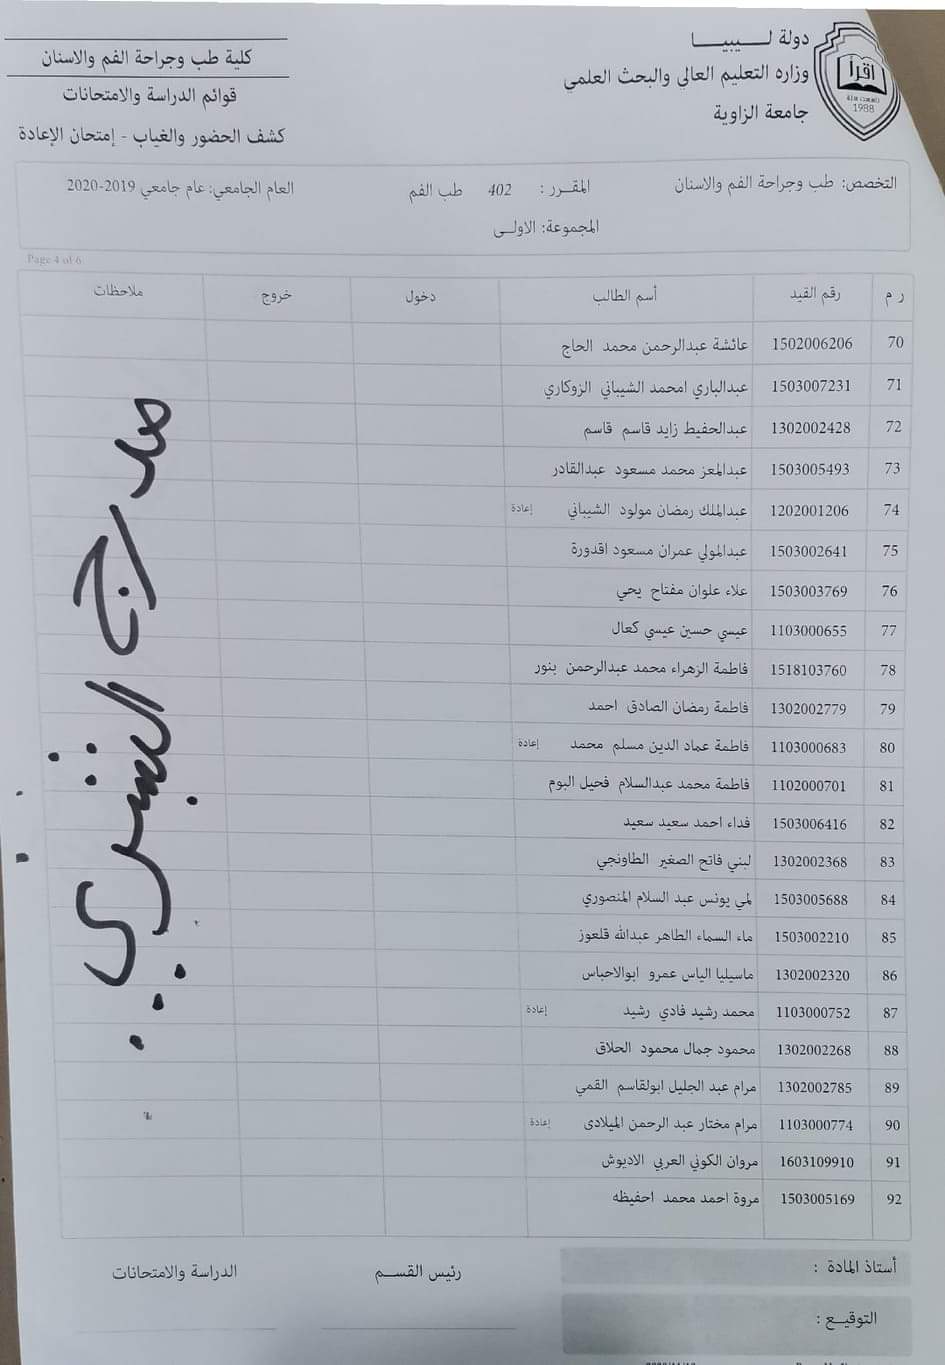 دولة لـــيبيـــا
وزاره التعليم العالي والبحث العلمي
جامعة الزاوية
اقرأ
1988
كلية طب وجراحة الفم والاسنان
قوائم الدراسة والامتحانات
كشف الحضور والغياب - إمتحان الإعادة
التخصص: طب وجراحة الفم والاسنان المقــرر : 402 طب الفم العام الجامعي: عام جامعي 2019-2020
المجموعة: الاولــى
Page 4 of 6
ر م رقم القيد أسم الطالب دخول خروج ملاحظات
70 1502006206 عائشة عبدالرحمن محمد الحاج
71 1503007231 عبدالباري امحمد الشيباني الزوكاري
72 1302002428 عبدالحفيظ زايد قاسم قاسم
73 1503005493 عبدالمعز محمد مسعود عبدالقادر
74 1202001206 عبدالملك رمضان مولود الشيباني إعادة
75 1503002641 عبدالمولي عمران مسعود اقدورة
76 1503003769 علاء علوان مفتاح يحي
77 1103000655 عيسي حسين عيسي كعال
78 1518103760 فاطمة الزهراء محمد عبدالرحمن بنور
79 1302002779 فاطمة رمضان الصادق احمد
80 1103000683 فاطمة عماد الدين مسلم محمد إعادة
81 1102000701 فاطمة محمد عبدالسلام فحيل البوم
82 1503006416 فداء احمد سعيد سعيد
83 1302002368 لبني فاتح الصغير الطاونجي
84 1503005688 لمي يونس عبد السلام المنصوري
85 1503002210 ماء السماء الطاهر عبدالله قلعوز
86 1302002320 ماسيليا الياس عمرو ابوالاحباس
87 1103000752 محمد رشيد فادي رشيد إعادة
88 1302002268 محمود جمال محمود الحلاق
89 1302002785 مرام عبد الجليل ابولقاسم القمي
90 1103000774 مرام مختار عبد الرحمن الميلادى إعادة
91 1603109910 مروان الكوني العربي الاديوش
92 1503005169 مروة احمد محمد احفيظه
مدرج
أستاذ المادة : رئيس القســم الدراسة والامتحانات
التوقيــع :